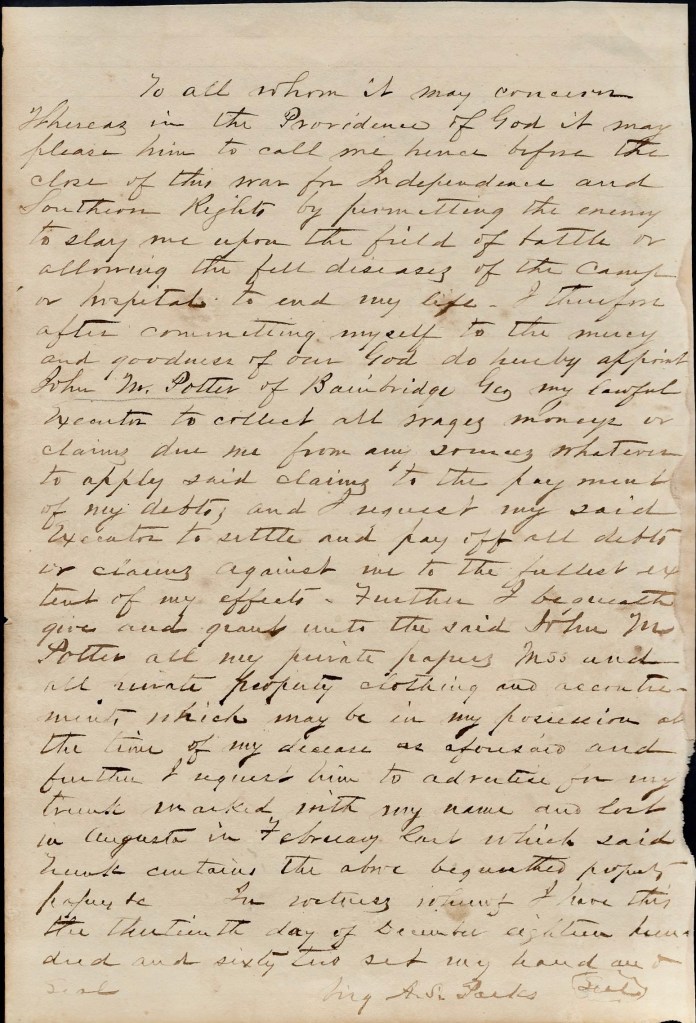 To all whom it may concern
Whereas in the Providence of God it may
please him to call me hence before the
close of this war for Independence and
Southern Rights by permetting the enemy
to slay me upon the field of battle or
allowing the fell diseases of the camp
or hospital to end my life - I therefore
after committing myself to the mercy
and goodness of our God do hereby appoint
John M. Potter of Bainbridge Geo my lawful
Executor to collect all wages moneys or
claims due me from any sources whatever
to apply said claims to the payment
of my debts, and I request my said
Executor to settle and pay off all debts
or claims against me to the fullest ex
tent of my effects - Further I bequeath
give and grant unto the said John M
Potter all my private papers Mss and
all private property clothing and accoutre-
ments which may be in my possession at
the time of my decease as aforesaid and
further I request him to advertise for my
trunk marked with my name and lost
in Augusta in February last which said
trunk contains the above bequethed property
papers &c In witness whereof I have this
the thirteenth day of December eighteen hun-
dred and sixty two set my hand and
seal A. S. Parks (seal)